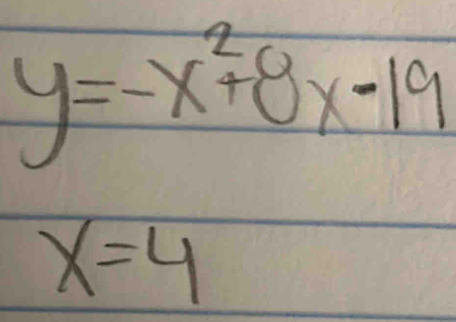 y=-x²+8x-19
x=4